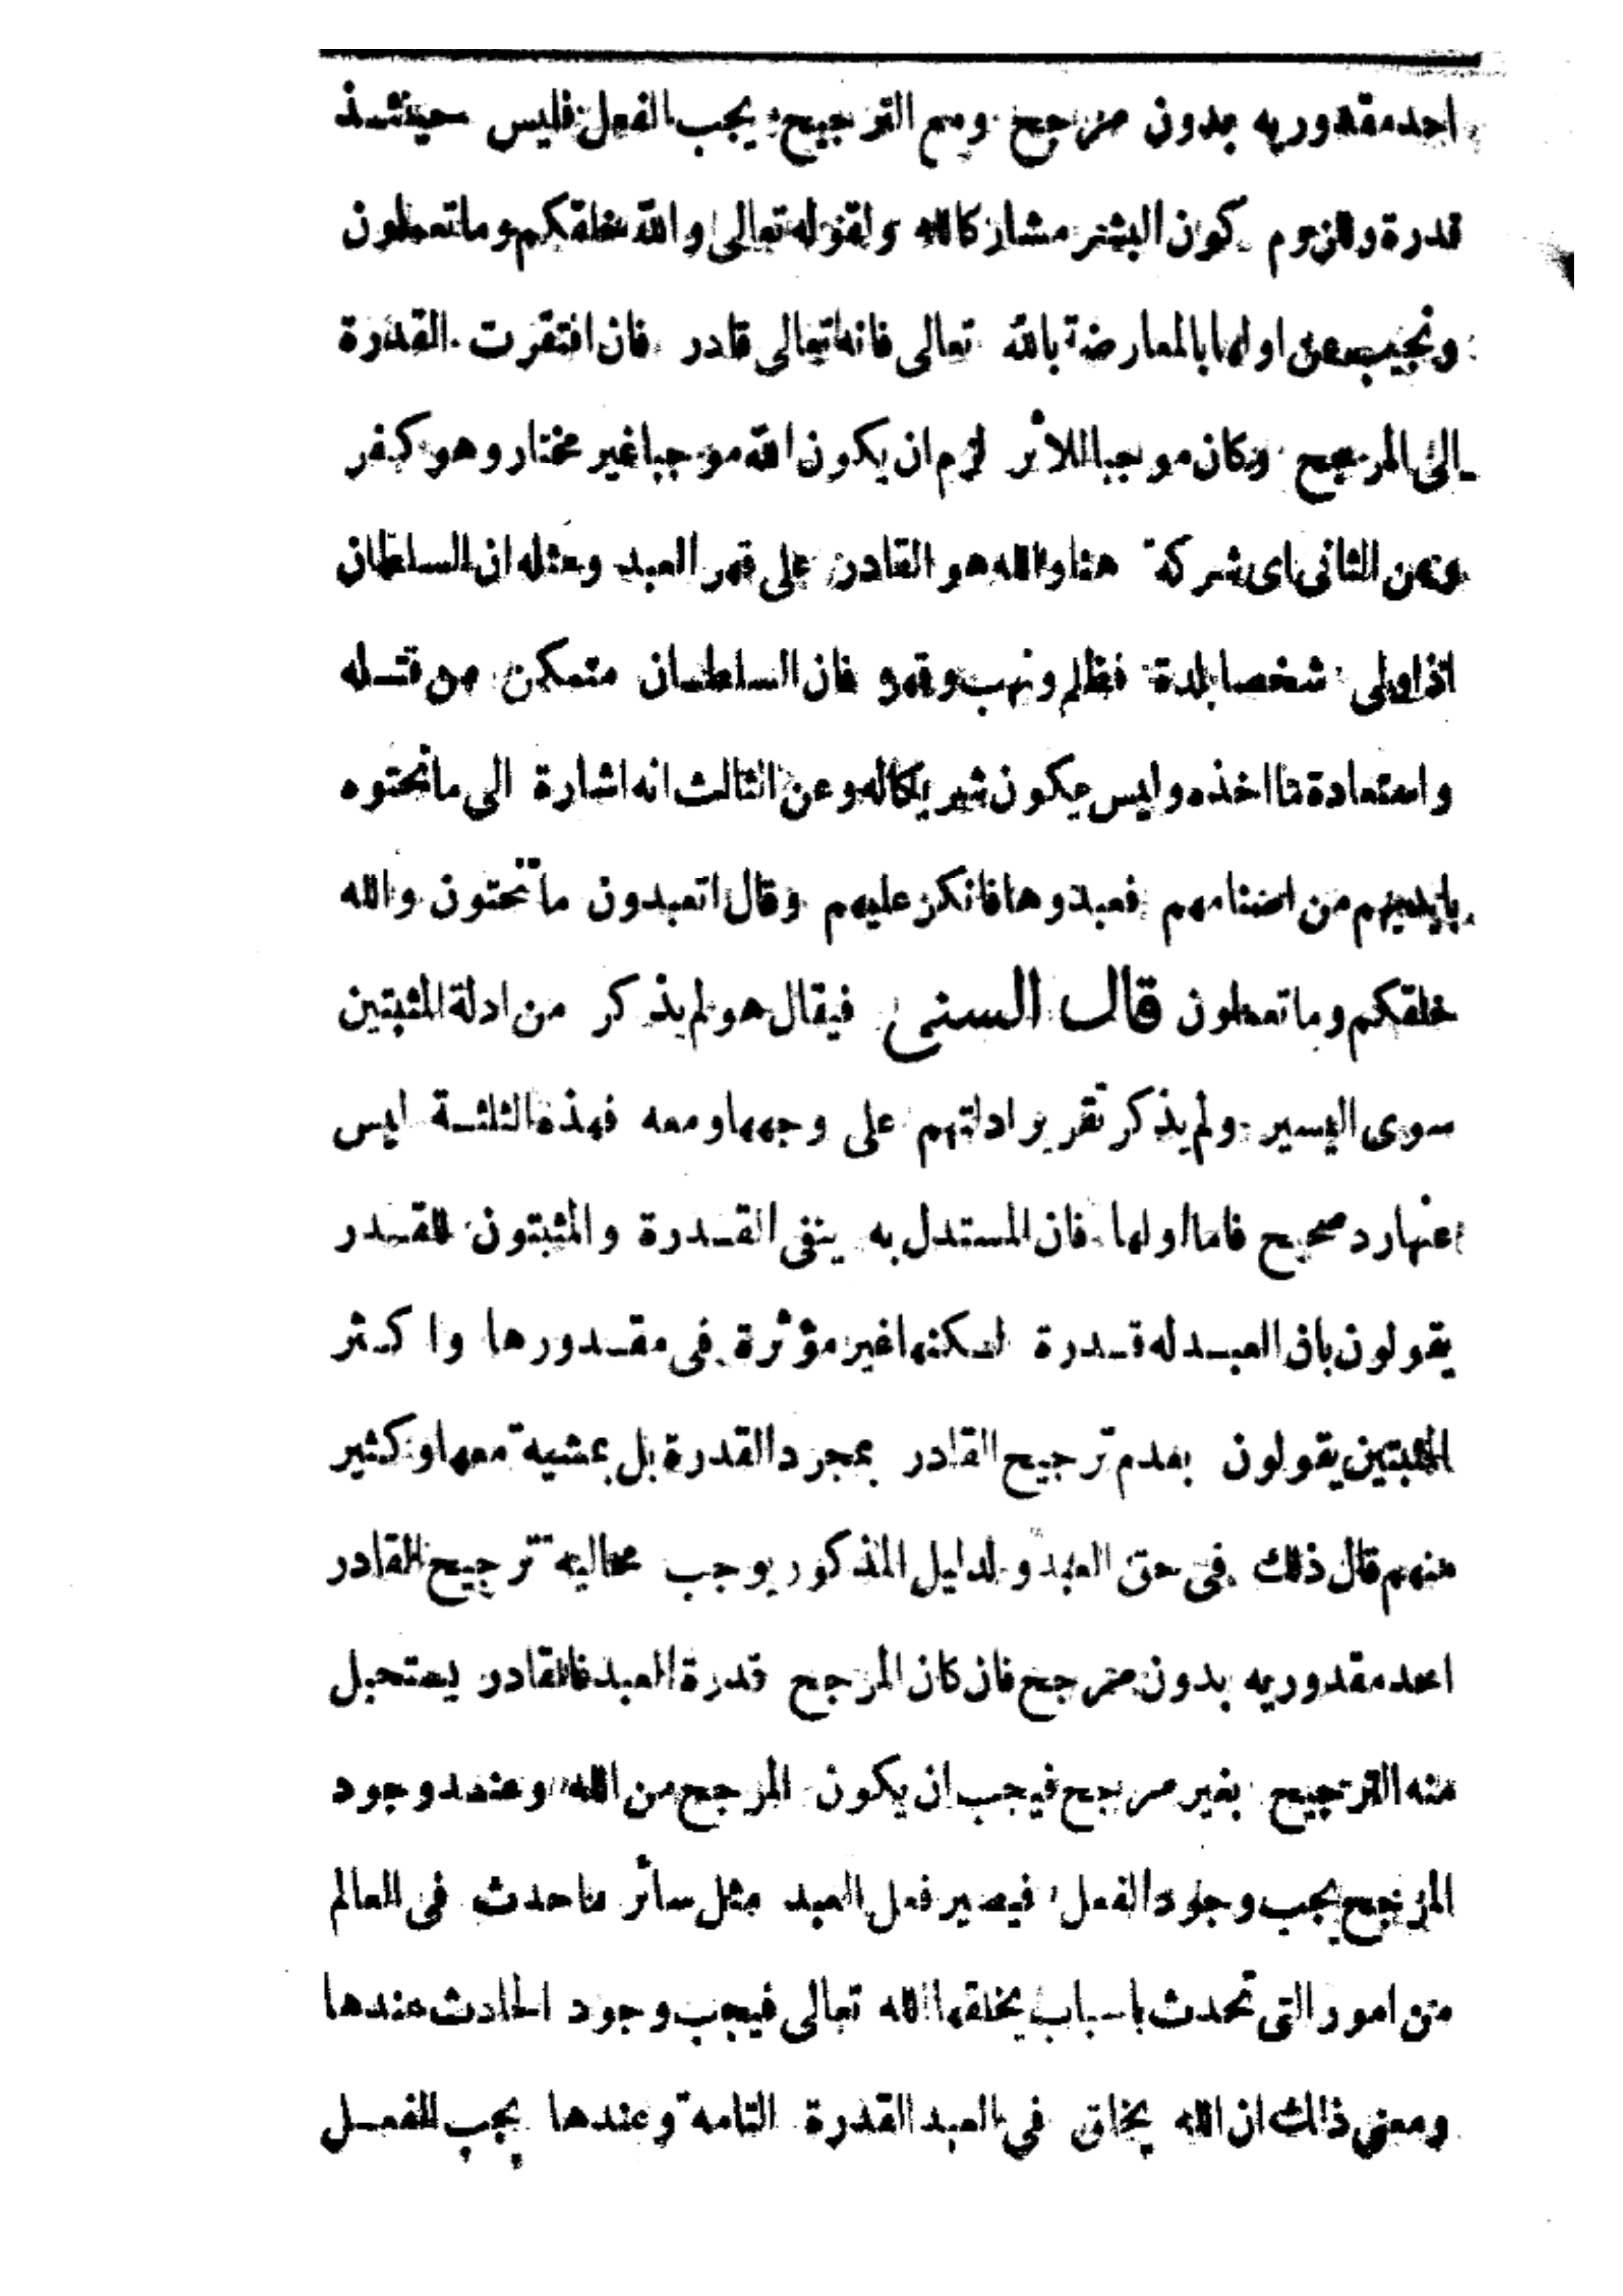 احد مقدوريه بدون مرجح ومع الترجيح يجب الفعل فليس حينئذ
قدرة ولازوم كون البشر مشاركا لله ولقوله تعالى والله خلقكم وما تعملون
ونجيب عن اولها بالمعارضة بالله تعالى فانه تعالى قادر فان افتقرت القدرة
الى المرجح وكان موجبا للاثر لزم ان يكون الله موجبا غير مختار وهو كفر
وعن الثانى اى شركة هنا والله هو القادر على قهر العبد ومثله ان السلطان
اذا ولى شخصا بلدة فظلم ونهب وقهر فان السلطان متمكن من قتله
واستعادة ما اخذه وليس يكون شريكا له وعن الثالث انه اشارة الى ما نحتوه
بايديهم من اصنامهم فعبدوها فانكر عليهم وقال اتعبدون ما تنحتون والله
خلقكم وما تعملون قال السنى فيقال هو لم يذكر من ادلة المثبتين
سوى اليسير ولم يذكر تقرير ادلتهم على وجهها ومعه فهذه الثلثة ليس
عنها رد صحيح فاما اولها فان المستدل به ينفى القدرة والمثبتون للقدر
يقولون بان العبد له قدرة لكنها غير مؤثرة فى مقدورها واكثر
المثبتين يقولون بعدم ترجيح القادر بمجرد القدرة بل بمشية معها وكثير
منهم قال ذلك فى حق العبد ولدليل المذكور يوجب محالية ترجيح القادر
احد مقدوريه بدون مرجح فان كان المرجح قدرة العبد فالقادر يستحيل
منه الترجيح بغير مرجح فيجب ان يكون المرجح من الله وعند وجود
المرجح يجب وجود الفعل فيصير فعل العبد مثل سائر ما حدث فى العالم
من امور التى تحدث باسباب يخلقها الله تعالى فيجب وجود الحادث عندها
ومعنى ذلك ان الله يخلق فى العبد القدرة التامة وعندها يجب الفعل